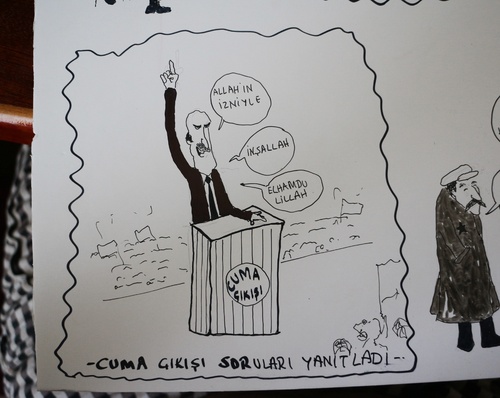 ALLAH'IN
İZNİYLE
İNŞALLAH
ELHAMDU
LİLLAH
CUMA
ÇIKIŞI
-CUMA ÇIKIŞI SORULARI YANITLADI-